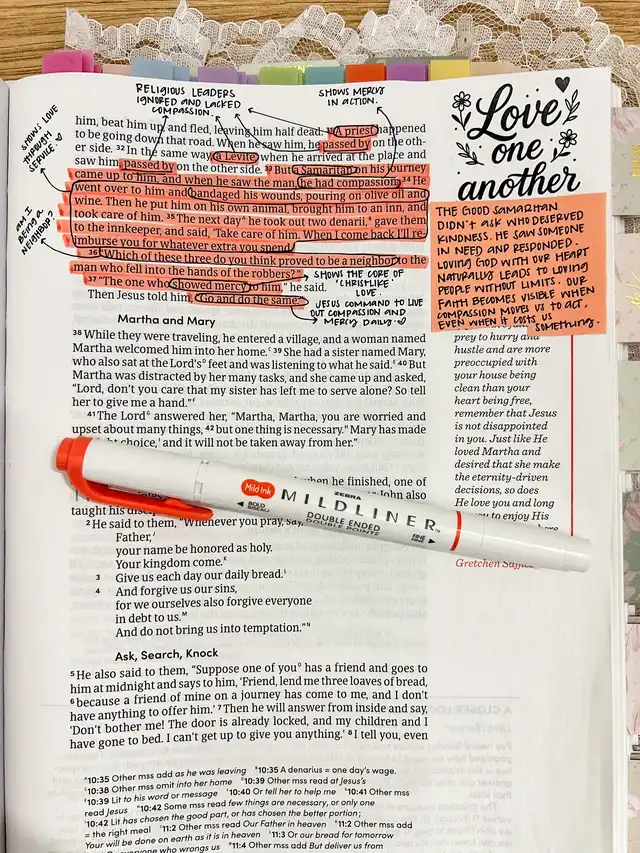 RELIGIOUS LEADERS
IGNORED AND LACKED
COMPASSION.
SHOWS MERCY
IN ACTION.
SHOWS LOVE
THROUGH
SERVICE.
AM I
BEING A
NEIGHBOR?
him, beat him up, and fled, leaving him half dead. 31 A priest happened
to be going down that road. When he saw him, he passed by on the oth-
er side. 32 In the same way, a Levite, when he arrived at the place and
saw him, passed by on the other side. 33 But a Samaritan on his journey
came up to him, and when he saw the man, he had compassion. 34 He
went over to him and bandaged his wounds, pouring on olive oil and
wine. Then he put him on his own animal, brought him to an inn, and
took care of him. 35 The next day he took out two denarii, gave them
to the innkeeper, and said, ‘Take care of him. When I come back I'll re-
imburse you for whatever extra you spend.’
36 “Which of these three do you think proved to be a neighbor to the
man who fell into the hands of the robbers?”
37 “The one who showed mercy to him,” he said.
Then Jesus told him, “Go and do the same.”
SHOWS THE CORE OF
'CHRISTLIKE'
LOVE.
JESUS COMMAND TO LIVE
OUT COMPASSION AND
MERCY DAILY.
Love
one
another
THE GOOD SAMARITAN
DIDN'T ASK WHO DESERVED
KINDNESS. HE SAW SOMEONE
IN NEED AND RESPONDED.
LOVING GOD WITH OUR HEART
NATURALLY LEADS TO LOVING
PEOPLE WITHOUT LIMITS. OUR
FAITH BECOMES VISIBLE WHEN
COMPASSION MOVES US TO ACT,
EVEN WHEN IT COSTS US
SOMETHING.
Martha and Mary
38 While they were traveling, he entered a village, and a woman named
Martha welcomed him into her home. 39 She had a sister named Mary,
who also sat at the Lord's feet and was listening to what he said. 40 But
Martha was distracted by her many tasks, and she came up and asked,
“Lord, don't you care that my sister has left me to serve alone? So tell
her to give me a hand.”
41 The Lord answered her, “Martha, Martha, you are worried and
upset about many things, 42 but one thing is necessary. Mary has made
choice, and it will not be taken away from her.”
when he finished, one of
John also
taught his
2 He said to them, “Whenever you pray, say,
Father,
your name be honored as holy.
Your kingdom come.
3 Give us each day our daily bread.
4 And forgive us our sins,
for we ourselves also forgive everyone
in debt to us.
And do not bring us into temptation.”
Ask, Search, Knock
5 He also said to them, “Suppose one of you has a friend and goes to
him at midnight and says to him, ‘Friend, lend me three loaves of bread,
6 because a friend of mine on a journey has come to me, and I don't
have anything to offer him.’ 7 Then he will answer from inside and say,
‘Don't bother me! The door is already locked, and my children and I
have gone to bed. I can't get up to give you anything.’ 8 I tell you, even
10:35 Other mss add as he was leaving 10:35 A denarius = one day's wage.
10:38 Other mss omit into her home 10:39 Other mss read at Jesus's
10:39 Lit to his word or message 10:40 Or tell her to help me 10:41 Other mss
read Jesus 10:42 Some mss read few things are necessary, or only one
10:42 Lit has chosen the good part, or has chosen the better portion;
= the right meal 11:2 Other mss read Our Father in heaven 11:2 Other mss add
Your will be done on earth as it is in heaven 11:3 Or our bread for tomorrow
everyone who wrongs us 11:4 Other mss add But deliver us from
prey to hurry and
hustle and are more
preoccupied with
your house being
clean than your
heart being free,
remember that Jesus
is not disappointed
in you. Just like He
loved Martha and
desired that she make
the eternity-driven
decisions, so does
He love you and long
to enjoy His
Gretchen Saffles
Mild Ink
ZEBRA
MILDLINER™
DOUBLE ENDED
DOUBLE POINTE
BOLD
FINE